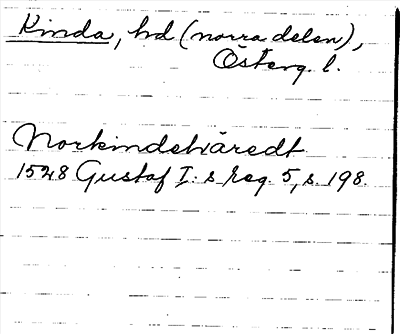 Kinda, hd (norra delen),
Österg. l.
Norkindehäredt
1528 Gustaf I:s reg. 5, s. 198.